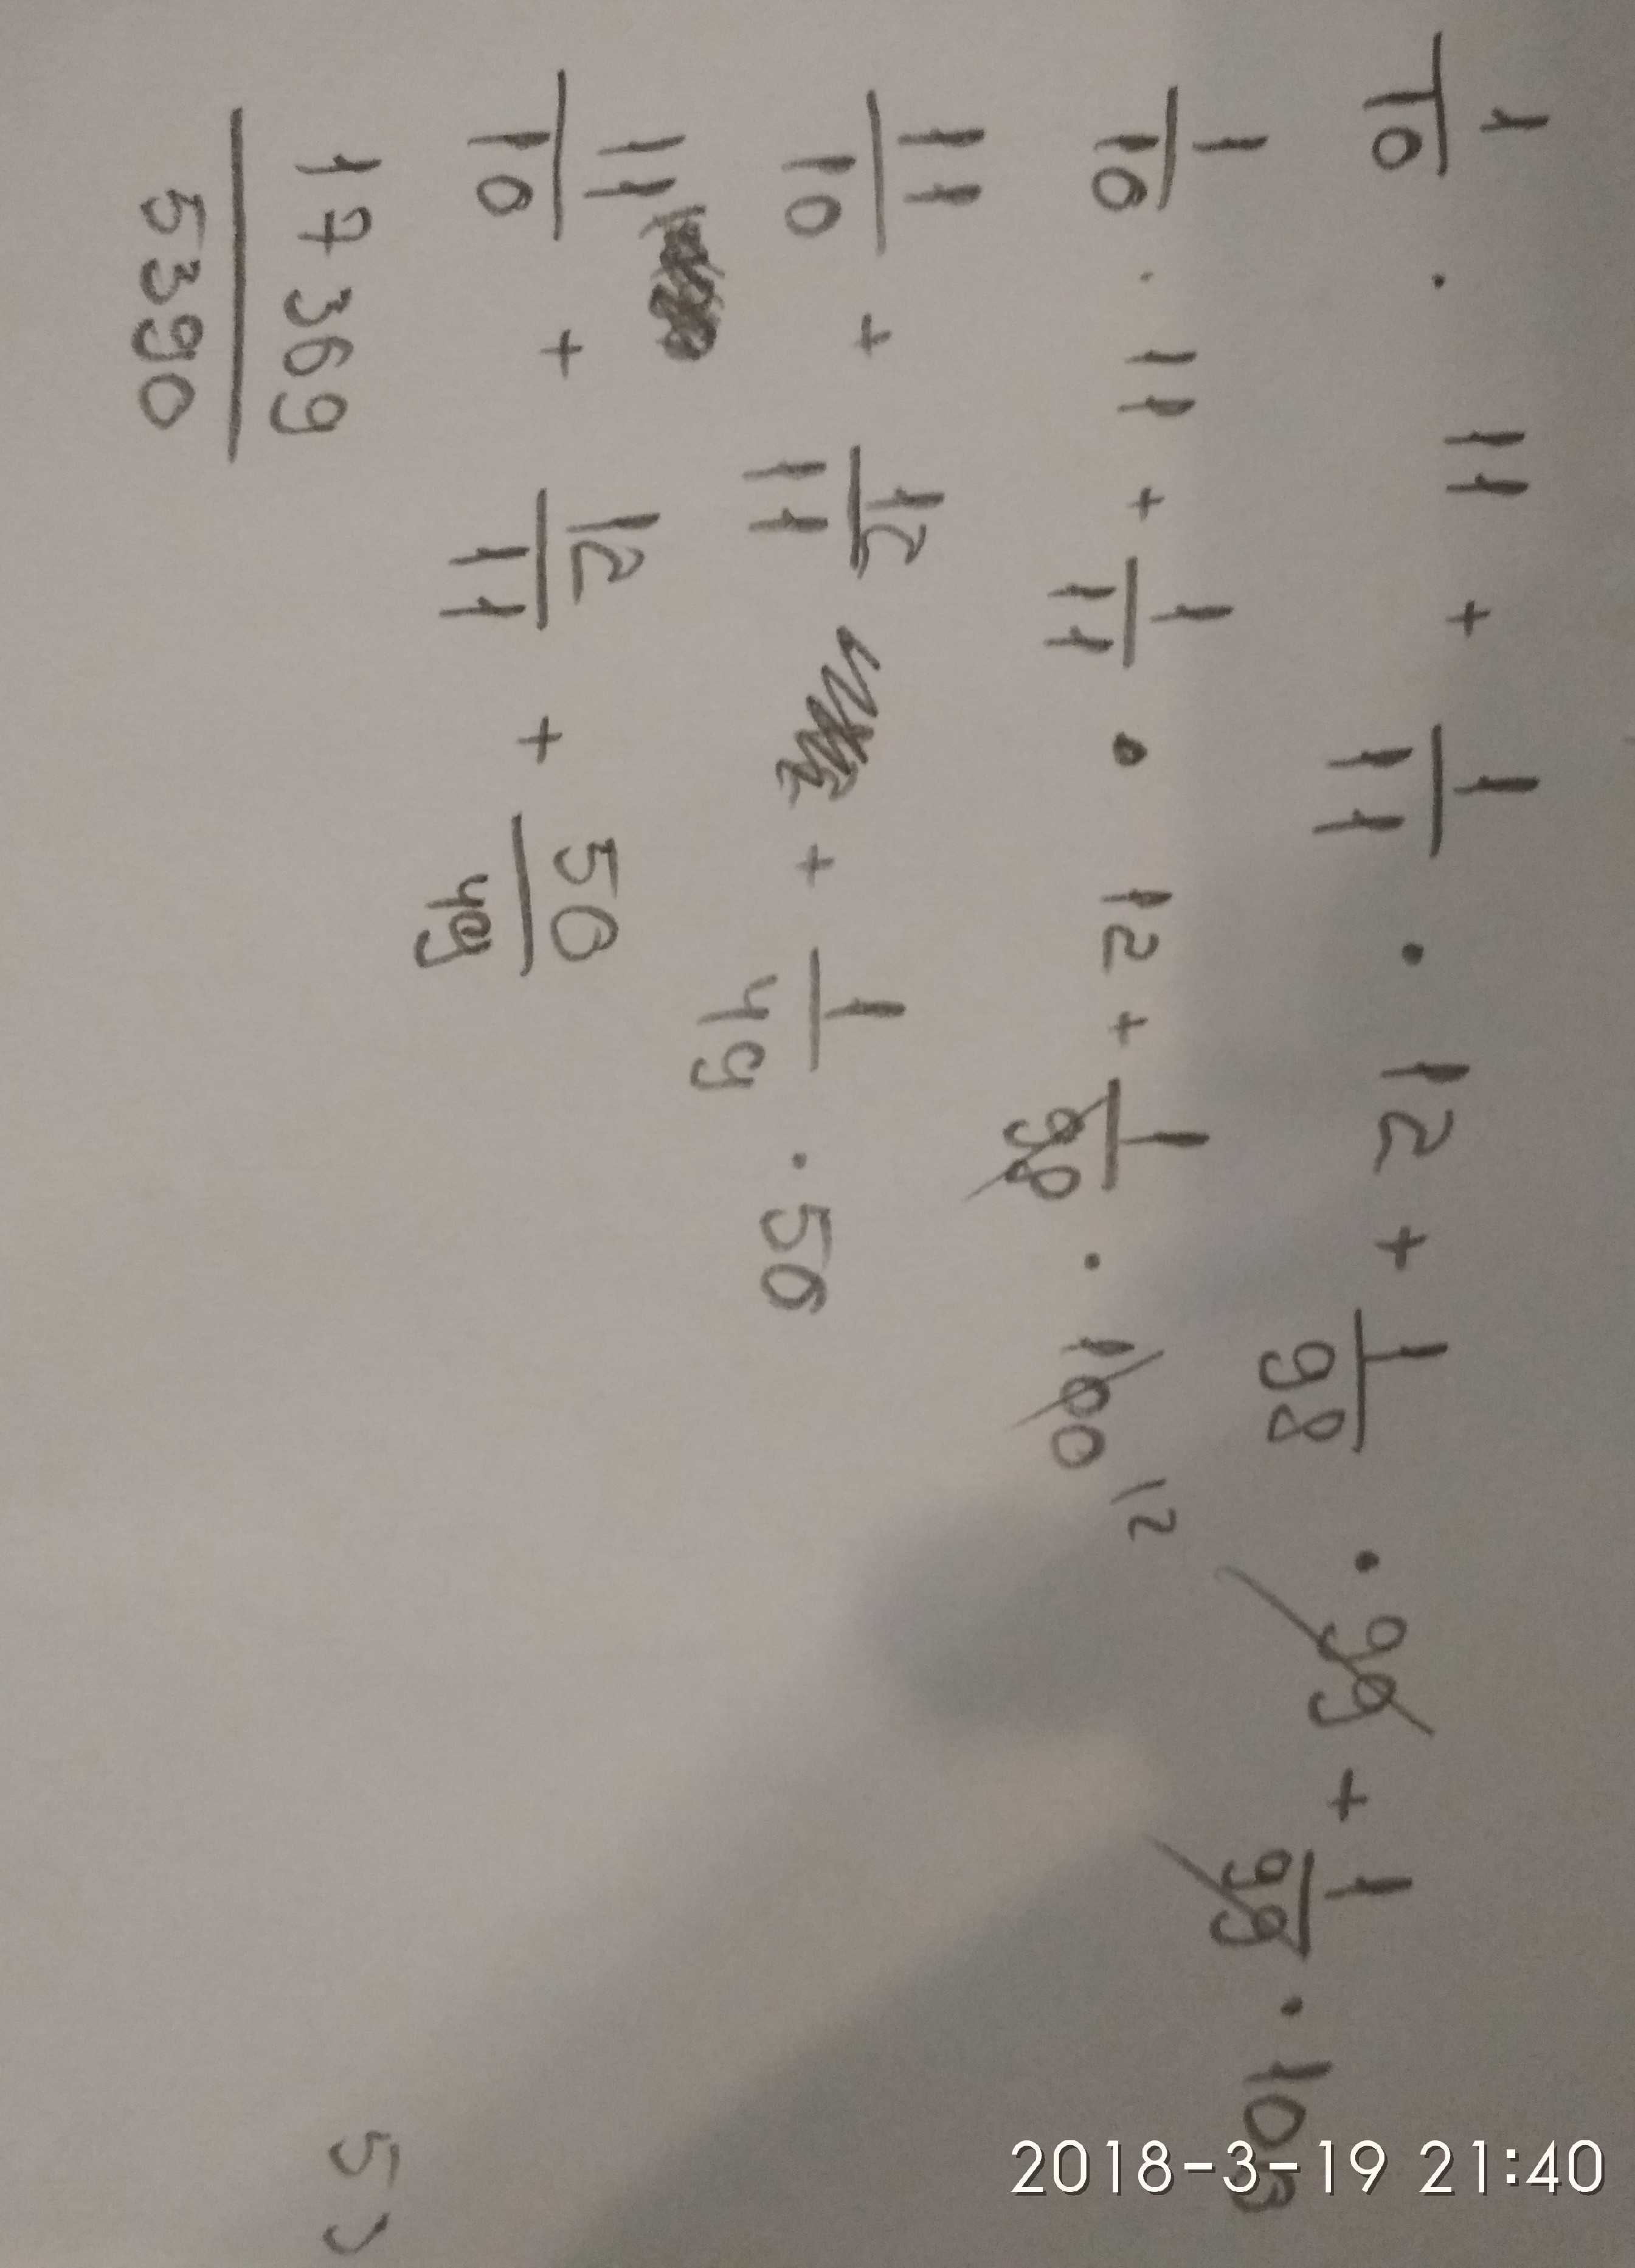 1/10 · 11 + 1/11 · 12 + 1/98 · 99 + 1/99 · 100
1/10 · 11 + 1/11 · 12 + 1/98 · 100 12
11/10 + 12/11 + 1/49 · 50
11/10 + 12/11 + 50/49
17369/5390
5)
2018-3-19 21:40